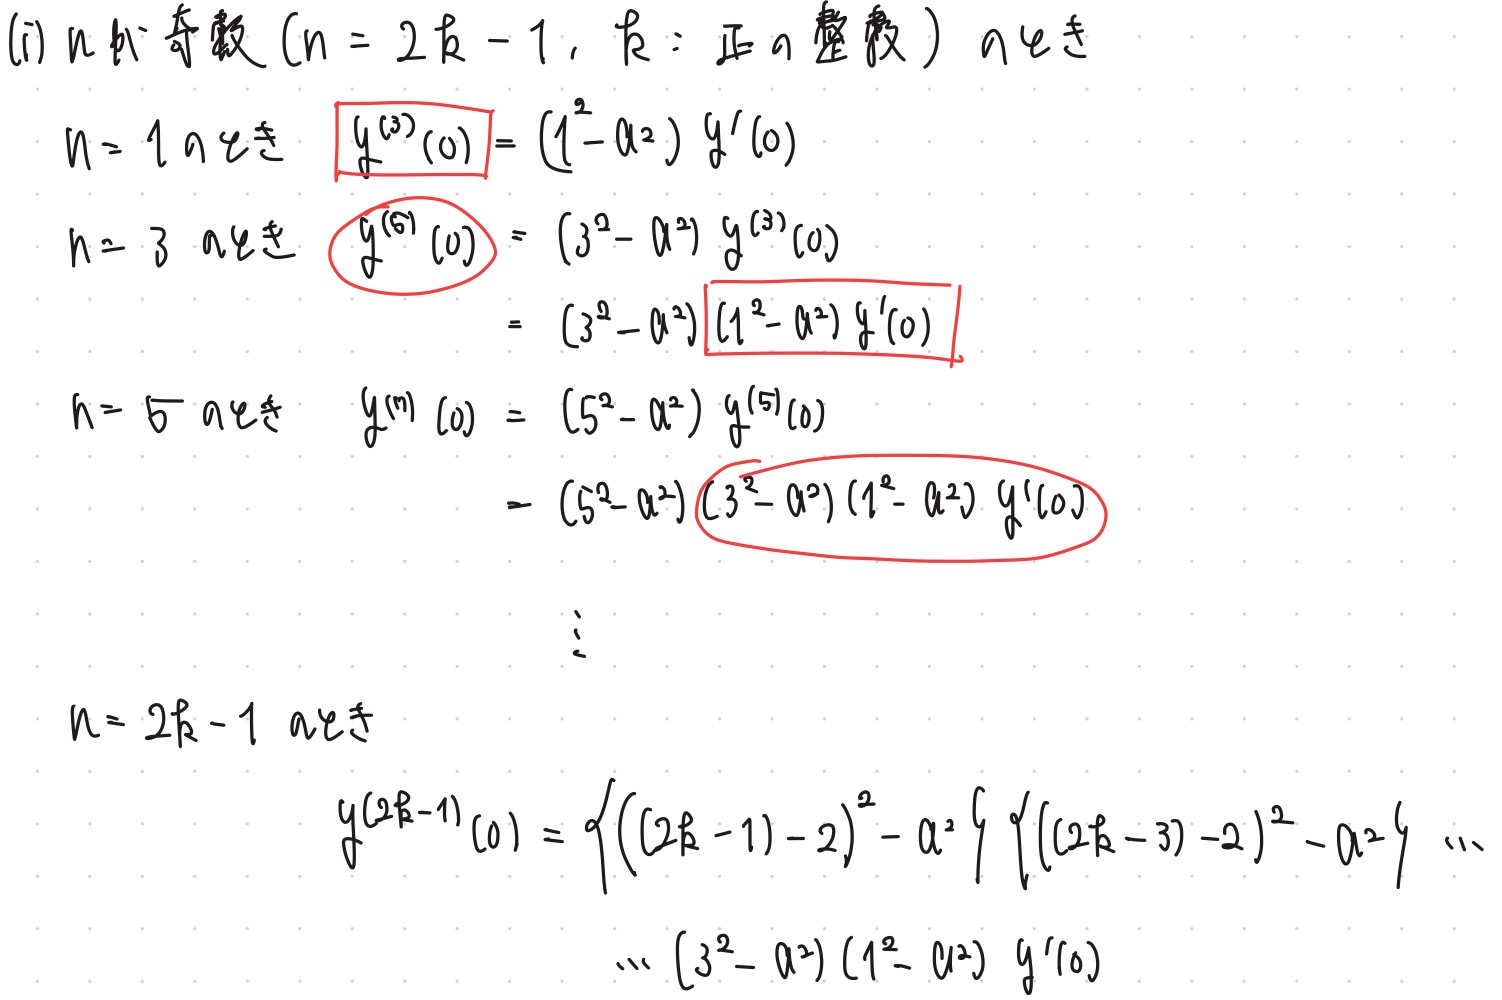 (i) nが奇数 (n = 2k - 1, k : 正の整数) のとき
n = 1 のとき y^(3)(0) = (1² - a²) y'(0)
n = 3 のとき y^(5)(0) = (3² - a²) y^(3)(0)
= (3² - a²) (1² - a²) y'(0)
n = 5 のとき y^(7)(0) = (5² - a²) y^(5)(0)
= (5² - a²) (3² - a²) (1² - a²) y'(0)
⋮
n = 2k - 1 のとき
y^(2k-1)(0) = {((2k - 1) - 2)² - a²} {((2k - 3) - 2)² - a²} …
… (3² - a²) (1² - a²) y'(0)